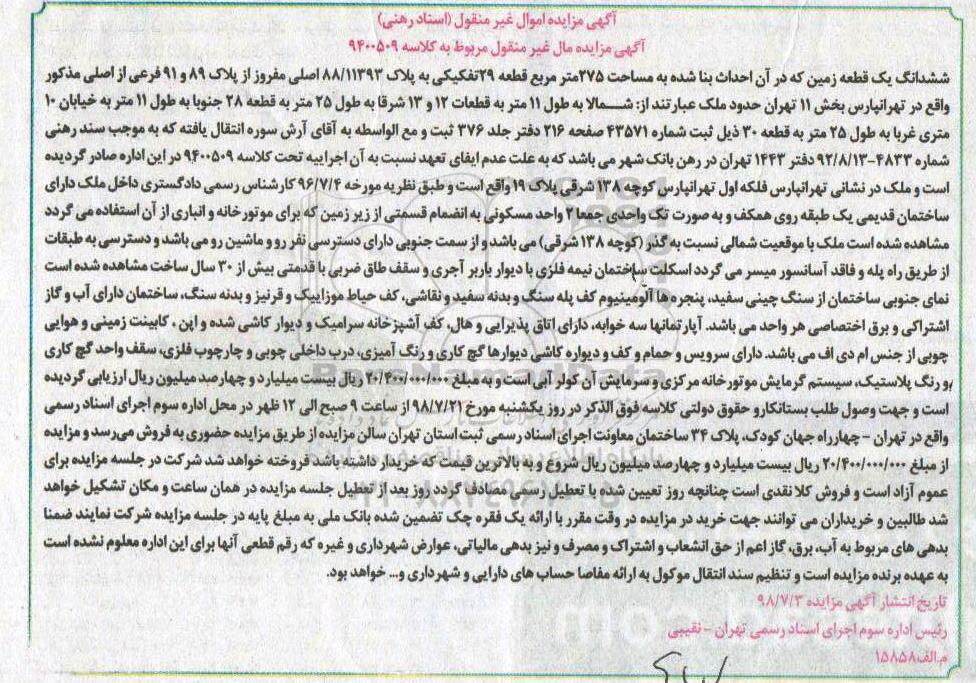 آگهی مزایده اموال غیر منقول (اسناد رهنی)
آگهی مزایده مال غیر منقول مربوط به کلاسه ۹۴۰۰۵۰۹
ششدانگ یک قطعه زمین که در آن احداث بنا شده به مساحت ۲۷۵متر مربع قطعه ۲۹تفکیکی به پلاک ۸۸/۱۱۳۹۳ اصلی مفروز از پلاک ۸۹ و ۹۱ فرعی از اصلی مذکور
واقع در تهرانپارس بخش ۱۱ تهران حدود ملک عبارتند از: شـــمالا به طول ۱۱ متر به قطعات ۱۲ و ۱۳ شرقا به طول ۲۵ متر به قطعه ۲۸ جنوبا به طول ۱۱ متر به خیابان ۱۰
متری غربا به طول ۲۵ متر به قطعه ۳۰ ذیل ثبت شماره ۴۳۵۷۱ صفحه ۲۱۶ دفتر جلد ۳۷۶ ثبت و مع الواسطه به آقای آرش سوره انتقال یافته که به موجب سند رهنی
شماره ۴۸۳۳-۹۲/۸/۱۳ دفتر ۱۴۴۳ تهران در رهن بانک شهر می باشد که به علت عدم ایفای تعهد نسبت به آن اجراییه تحت کلاسه ۹۴۰۰۵۰۹ در این اداره صادر گردیده
است و ملک در نشانی تهرانپارس فلکه اول تهرانپارس کوچه ۱۳۸ شرقی پلاک ۱۹ واقع است و طبق نظریه مورخه ۹۶/۷/۴ کارشناس رسمی دادگستری داخل ملک دارای
ساختمان قدیمی یک طبقه روی همکف و به صورت تک واحدی جمعا ۲ واحد مسکونی به انضمام قسمتی از زیر زمین که برای موتورخانه و انباری از آن استفاده می گردد
مشاهده شده است ملک با موقعیت شمالی نسبت به گذر (کوچه ۱۳۸ شرقی) می باشد و از سمت جنوبی دارای دسترسی نفر رو و ماشین رو می باشد و دسترسی به طبقات
از طریق راه پله و فاقد آسانسور میسر می گردد اسکلت ساختمان نیمه فلزی با دیوار باربر آجری و سقف طاق ضربی با قدمتی بیش از ۳۰ سال ساخت مشاهده شده است
نمای جنوبی ساختمان از سنگ چینی سفید، پنجره ها آلومینیوم کف پله سنگ و بدنه سفید و نقاشی، کف حیاط موزاییک و قرنیز و بدنه سنگ، ساختمان دارای آب و گاز
اشتراکی و برق اختصاصی هر واحد می باشد. آپارتمانها سه خوابه، دارای اتاق پذیرایی و هال، کف آشپزخانه سرامیک و دیوار کاشی شده و اپن، کابینت زمینی و هوایی
چوبی از جنس ام دی اف می باشد. دارای سرویس و حمام و کف و دیواره کاشی دیوارها گچ کاری و رنگ آمیزی، درب داخلی چوبی و چارچوب فلزی، سقف واحد گچ کاری
و رنگ پلاستیک، سیستم گرمایش موتورخانه مرکزی و سرمایش آن کولر آبی است و به مبلغ ۲۰/۴۰۰/۰۰۰/۰۰۰ ریال بیست میلیارد و چهارصد میلیون ریال ارزیابی گردیده
است و جهت وصول طلب بستانکارو حقوق دولتی کلاسه فوق الذکر در روز یکشنبه مورخ ۹۸/۷/۲۱ از ساعت ۹ صبح الی ۱۲ ظهر در محل اداره سوم اجرای اسناد رسمی
واقع در تهران - چهارراه جهان کودک، پلاک ۳۴ ساختمان معاونت اجرای اسناد رسمی ثبت استان تهران سالن مزایده از طریق مزایده حضوری به فروش می‌رسد و مزایده
از مبلغ ۲۰/۴۰۰/۰۰۰/۰۰۰ ریال بیست میلیارد و چهارصد میلیون ریال شروع و به بالاترین قیمت که خریدار داشته باشد فروخته خواهد شد شرکت در جلسه مزایده برای
عموم آزاد است و فروش کلا نقدی است چنانچه روز تعیین شده با تعطیل رسمی مصادف گردد روز بعد از تعطیل جلسه مزایده در همان ساعت و مکان تشکیل خواهد
شد طالبین و خریداران می توانند جهت خرید در مزایده در وقت مقرر با ارائه یک فقره چک تضمین شده بانک ملی به مبلغ پایه در جلسه مزایده شرکت نمایند ضمنا
بدهی های مربوط به آب، برق، گاز اعم از حق انشعاب و اشتراک و مصرف و نیز بدهی مالیاتی، عوارض شهرداری و غیره که رقم قطعی آنها برای این اداره معلوم نشده است
به عهده برنده مزایده است و تنظیم سند انتقال موکول به ارائه مفاصا حساب های دارایی و شهرداری و... خواهد بود.
تاریخ انتشار آگهی مزایده ۹۸/۷/۳
رئیس اداره سوم اجرای اسناد رسمی تهران - نقیبی
م.الف۱۵۸۵۸